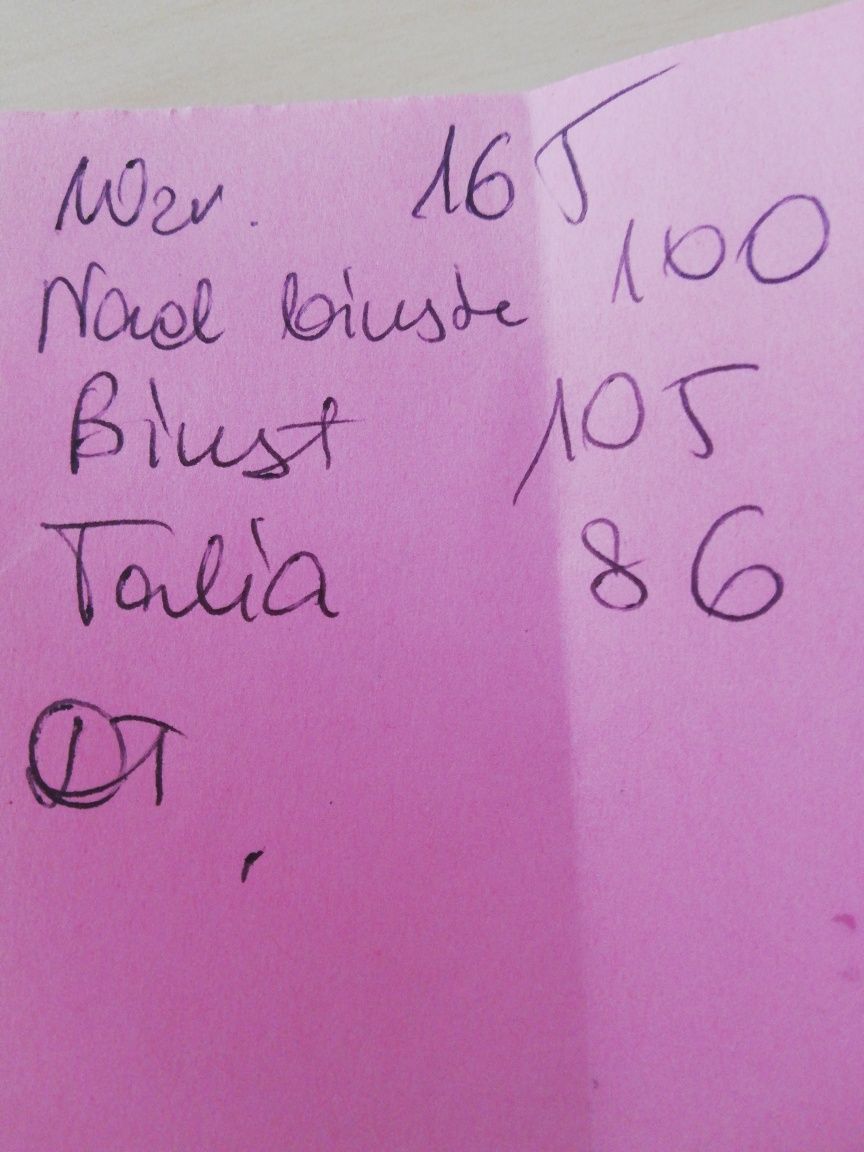 Wzr. 165
Nad biuste 100
Biust 105
Talia 86
DT